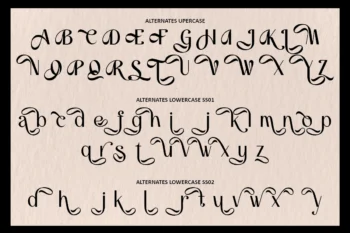 ALTERNATES UPERCASE
A B C D Æ F G H I J K L M
N O P Q R S T U V W X Y Z
ALTERNATES LOWERCASE SS01
a b c d e f g h i j k l m n o p
q r s t u v w x y z
ALTERNATES LOWERCASE SS02
d h j k l r t u v w x y